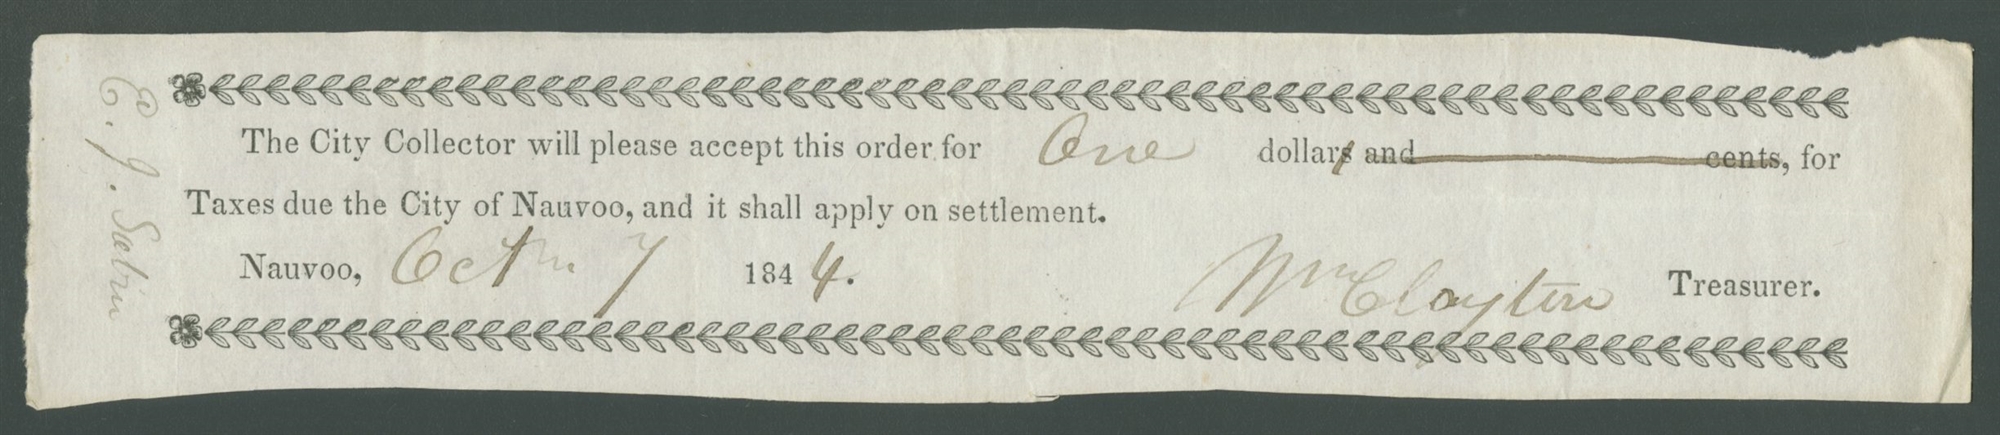 E. J. Sabin
The City Collector will please accept this order for One dollars and cents, for
Taxes due the City of Nauvoo, and it shall apply on settlement.
Nauvoo, Octr 7 1844. Wm Clayton Treasurer.